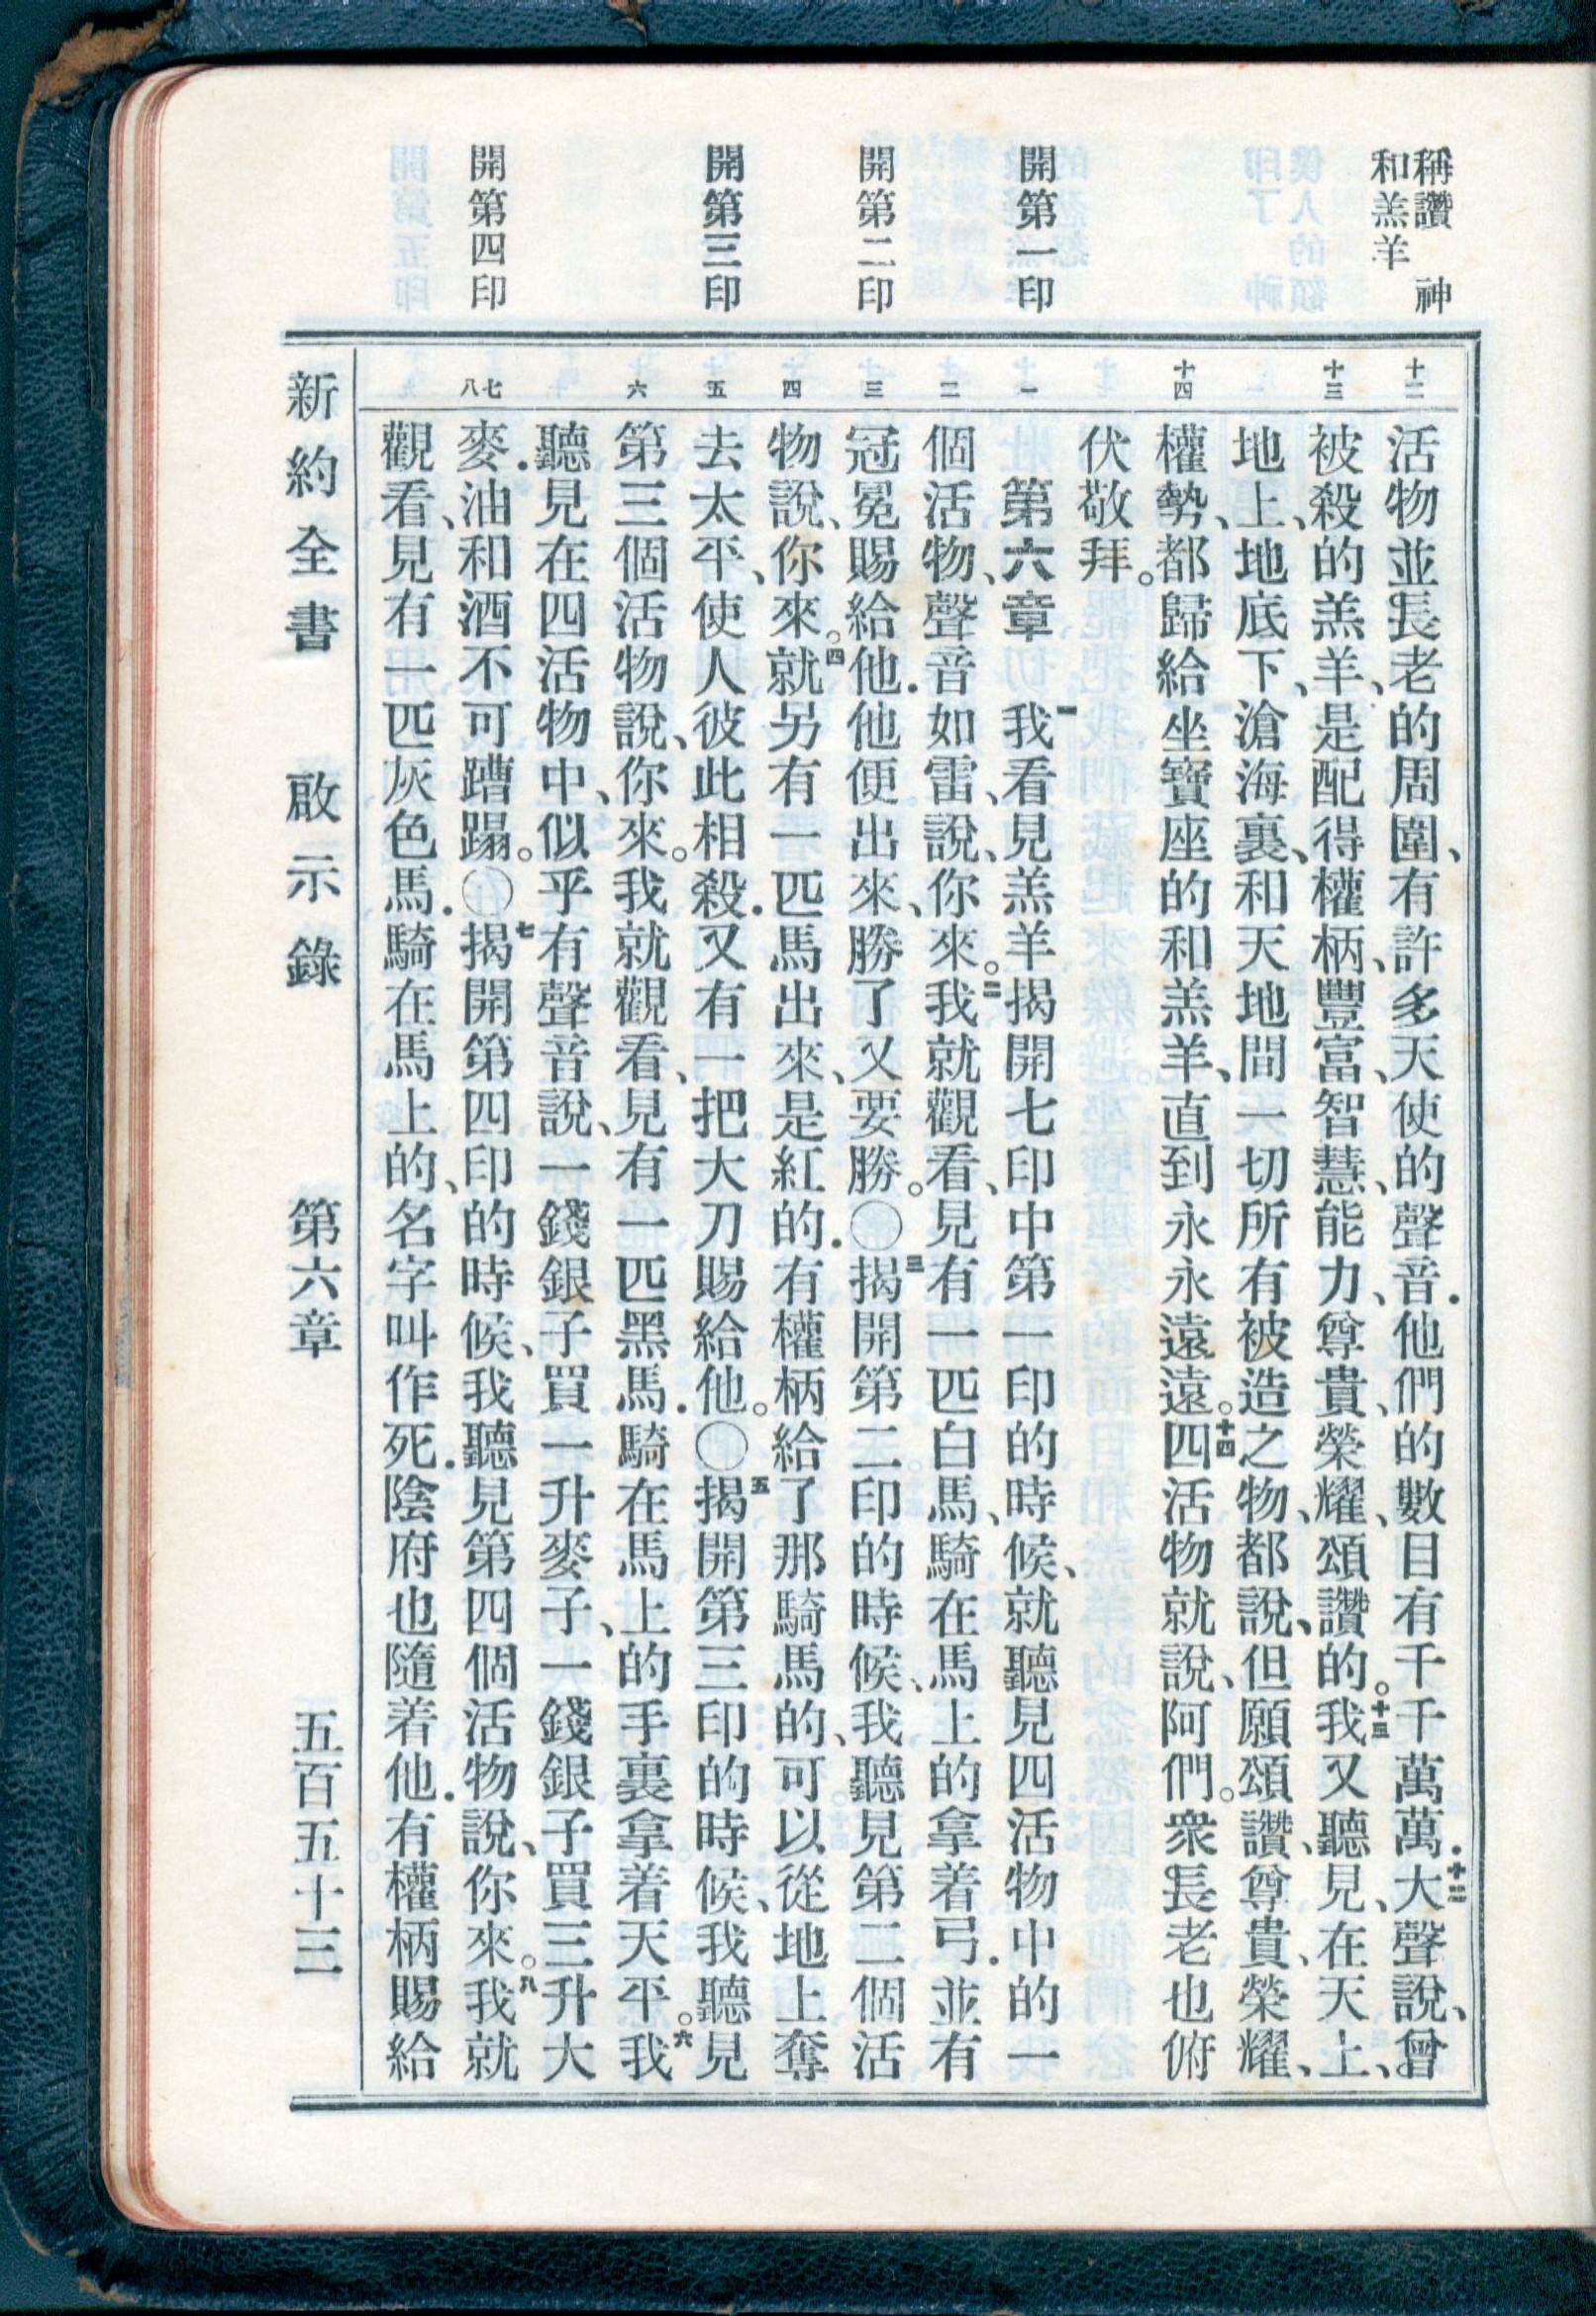 稱讚 神
和羔羊
開第一印
開第二印
開第三印
開第四印
十二
十三
十四
一
二
三
四
五
六
七
八
活物並長老的周圍、有許多天使的聲音．他們的數目有千千萬萬．十二大聲說、曾
被殺的羔羊、是配得權柄、豐富、智慧、能力、尊貴、榮耀、頌讚的。十三我又聽見、在天上、
地上、地底下、滄海裏、和天地間一切所有被造之物、都說、但願頌讚、尊貴、榮耀、
權勢、都歸給坐寶座的和羔羊、直到永永遠遠。十四四活物就說、阿們。衆長老也俯
伏敬拜。
第六章 一我看見羔羊揭開七印中第一印的時候、就聽見四活物中的一
個活物、聲音如雷、說、你來。二我就觀看、見有一匹白馬、騎在馬上的拿着弓．並有
冠冕賜給他．他便出來、勝了又要勝。〇三揭開第二印的時候、我聽見第二個活
物說、你來。四就另有一匹馬出來、是紅的．有權柄給了那騎馬的、可以從地上奪
去太平、使人彼此相殺．又有一把大刀賜給他。〇五揭開第三印的時候、我聽見
第三個活物說、你來。我就觀看、見有一匹黑馬．騎在馬上的手裏拿着天平。六我
聽見在四活物中、似乎有聲音說、一錢銀子買一升麥子、一錢銀子買三升大
麥．油和酒不可蹧蹋。〇七揭開第四印的時候、我聽見第四個活物說、你來。八我就
觀看、見有一匹灰色馬．騎在馬上的、名字叫作死．陰府也隨着他．有權柄賜給
新約全書 啟示錄 第六章 五百五十三